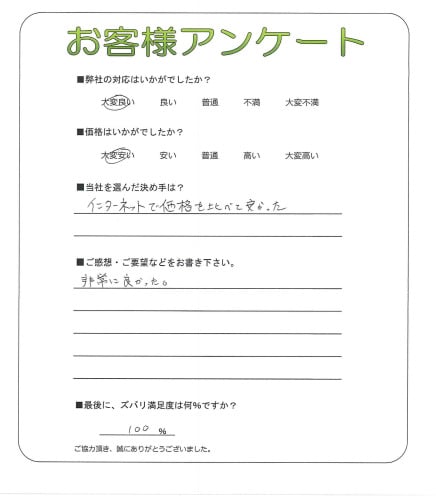 お客様アンケート
■弊社の対応はいかがでしたか？
大変良い 良い 普通 不満 大変不満
■価格はいかがでしたか？
大変安い 安い 普通 高い 大変高い
■当社を選んだ決め手は？
インターネットで価格を比べて安かった
■ご感想・ご要望などをお書き下さい。
非常に良かった。
■最後に、ズバリ満足度は何%ですか？
100 %
ご協力頂き、誠にありがとうございました。